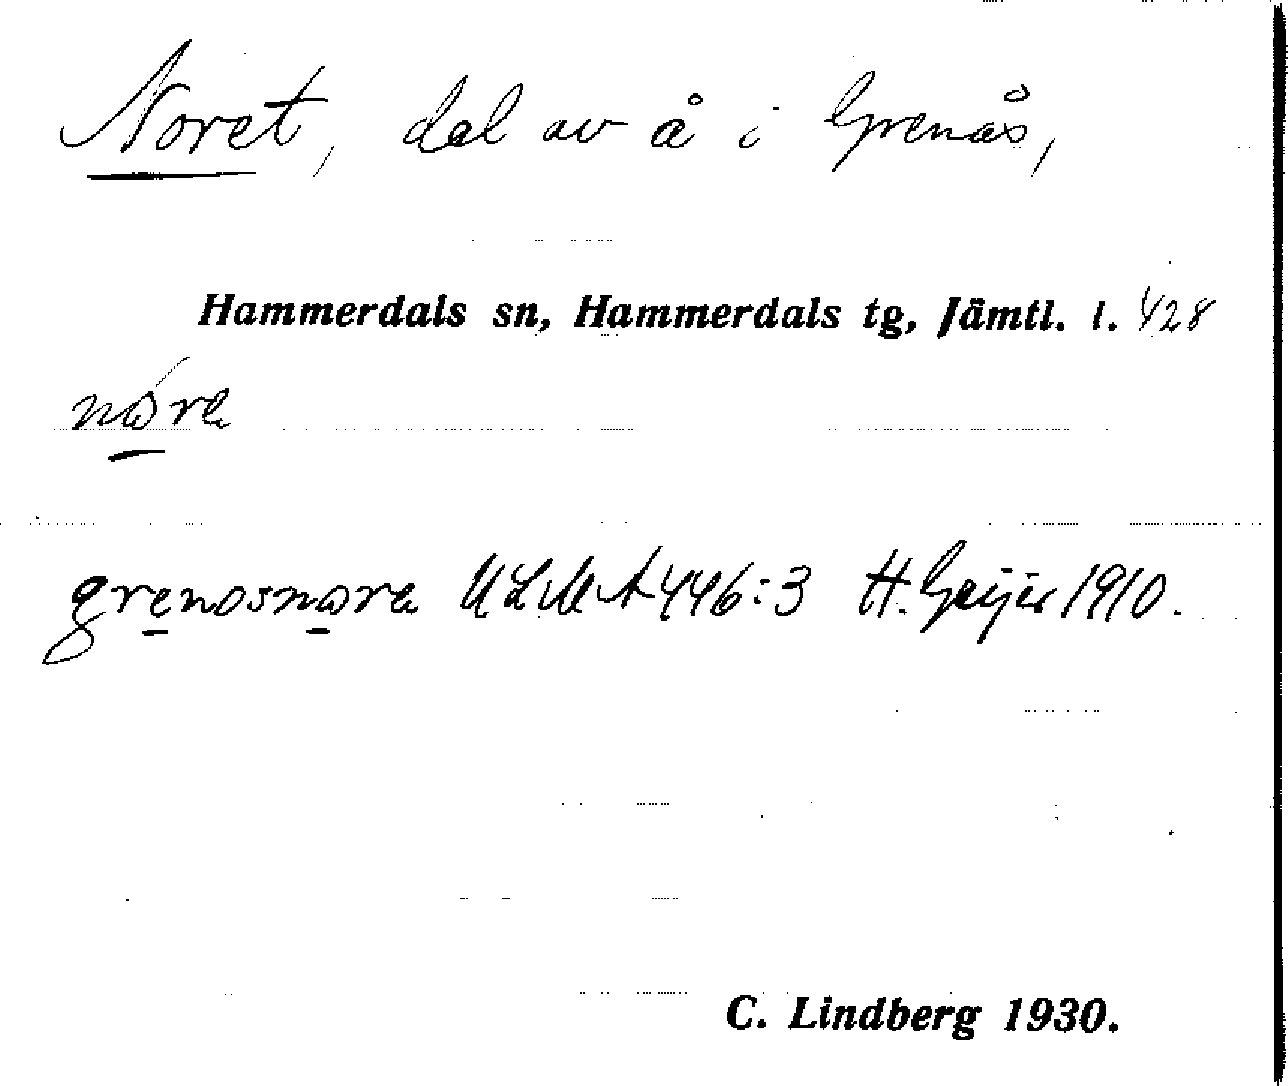 Noret, del av å i Grenås,
Hammerdals sn, Hammerdals tg, Jämtl. l. 428
nøra
grenosnøra ULMA 446:3 H. Geijer 1910.
C. Lindberg 1930.